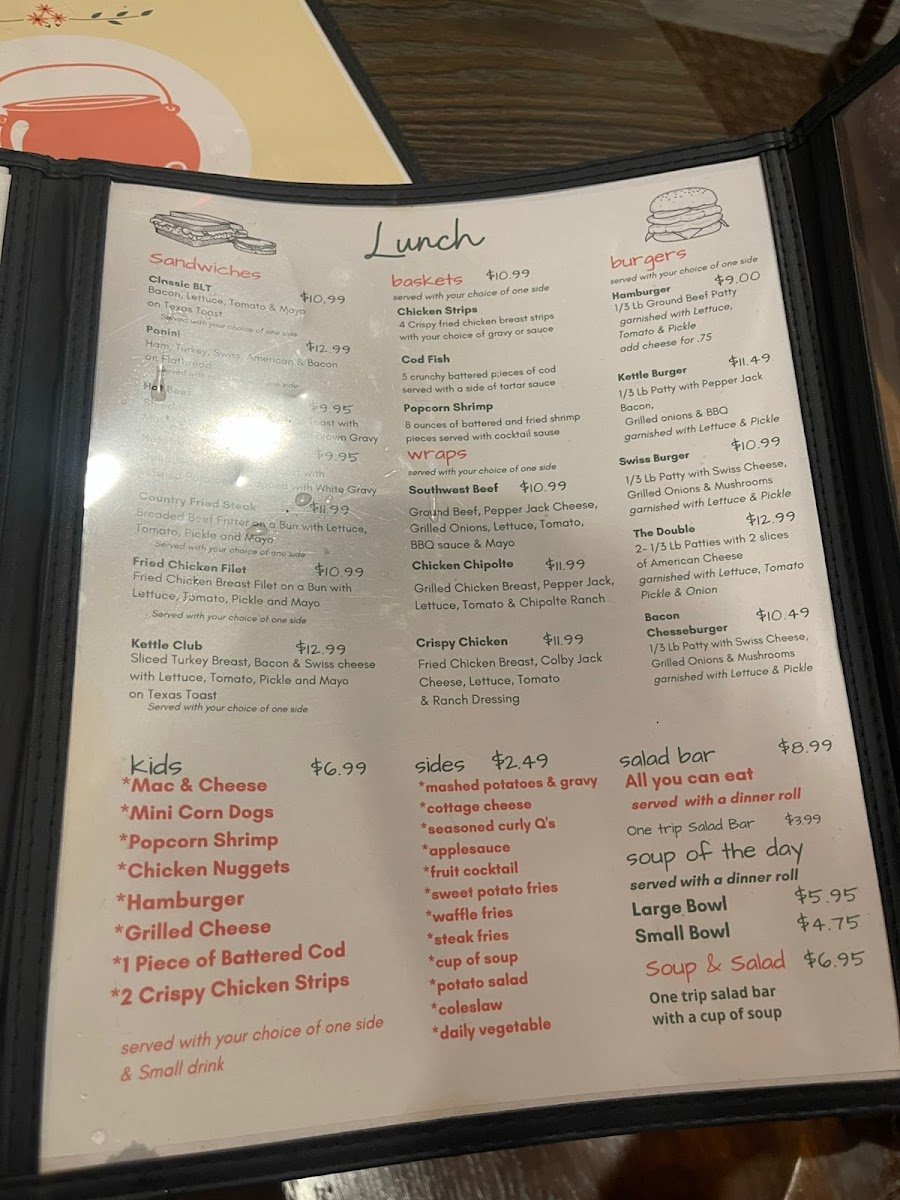 Lunch
Sandwiches
Classic BLT
$10.99
Bacon, Lettuce, Tomato & Mayo
on Texas Toast
Served with your choice of one side
Panini
$12.99
Ham, Turkey, Swiss, American & Bacon
on Flatbread
one side
Beef
$9.95
Toast with
Brown Gravy
$9.95
with
with White Gravy
Country Fried Steak
$11.99
Breaded Beef Fritter on a Bun with Lettuce,
Tomato, Pickle and Mayo
Served with your choice of one side
Fried Chicken Filet
$10.99
Fried Chicken Breast Filet on a Bun with
Lettuce, Tomato, Pickle and Mayo
Served with your choice of one side
Kettle Club
$12.99
Sliced Turkey Breast, Bacon & Swiss cheese
with Lettuce, Tomato, Pickle and Mayo
on Texas Toast
Served with your choice of one side
baskets $10.99
served with your choice of one side
Chicken Strips
4 Crispy fried chicken breast strips
with your choice of gravy or sauce
Cod Fish
3 crunchy battered pieces of cod
served with a side of tartar sauce
Popcorn Shrimp
8 ounces of battered and fried shrimp
pieces served with cocktail sause
wraps
served with your choice of one side
Southwest Beef $10.99
Ground Beef, Pepper Jack Cheese,
Grilled Onions, Lettuce, Tomato,
BBQ sauce & Mayo
Chicken Chipolte $11.99
Grilled Chicken Breast, Pepper Jack,
Lettuce, Tomato & Chipolte Ranch
Crispy Chicken $11.99
Fried Chicken Breast, Colby Jack
Cheese, Lettuce, Tomato
& Ranch Dressing
burgers
served with your choice of one side
Hamburger $9.00
1/3 Lb Ground Beef Patty
garnished with Lettuce,
Tomato & Pickle
add cheese for .75
Kettle Burger $11.49
1/3 Lb Patty with Pepper Jack
Bacon,
Grilled onions & BBQ
garnished with Lettuce & Pickle
Swiss Burger $10.99
1/3 Lb Patty with Swiss Cheese,
Grilled Onions & Mushrooms
garnished with Lettuce & Pickle
The Double $12.99
2- 1/3 Lb Patties with 2 slices
of American Cheese
garnished with Lettuce, Tomato
Pickle & Onion
Bacon
Chesseburger $10.49
1/3 Lb Patty with Swiss Cheese,
Grilled Onions & Mushrooms
garnished with Lettuce & Pickle
kids $6.99
*Mac & Cheese
*Mini Corn Dogs
*Popcorn Shrimp
*Chicken Nuggets
*Hamburger
*Grilled Cheese
*1 Piece of Battered Cod
*2 Crispy Chicken Strips
served with your choice of one side
& Small drink
sides $2.49
*mashed potatoes & gravy
*cottage cheese
*seasoned curly Q's
*applesauce
*fruit cocktail
*sweet potato fries
*waffle fries
*steak fries
*cup of soup
*potato salad
*coleslaw
*daily vegetable
salad bar $8.99
All you can eat
served with a dinner roll
One trip Salad Bar $3.99
soup of the day
served with a dinner roll
Large Bowl $5.95
Small Bowl $4.75
Soup & Salad $6.95
One trip salad bar
with a cup of soup